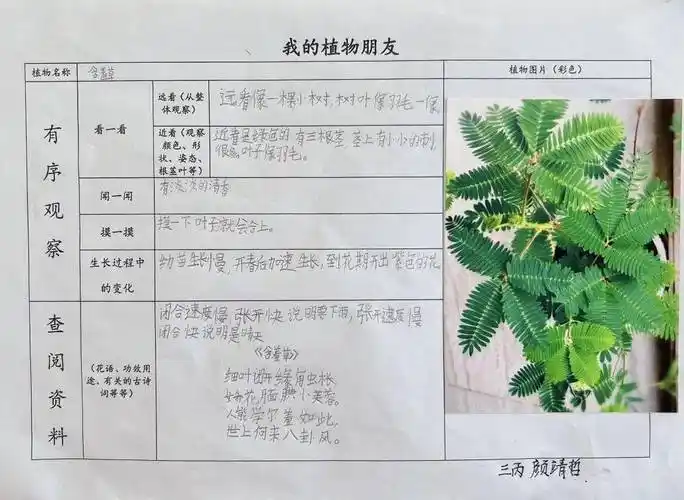 我的植物朋友
植物名称
含羞草
植物图片（彩色）
有序观察
看一看
远看（从整
体观察）
远看像一棵小树,树叶像羽毛一像
近看（观察
颜色、形
状、姿态、
根茎叶等）
近看是绿色的 有三根茎 茎上有小小的刺
叶子像羽毛。
闻一闻
有淡淡的清香
摸一摸
摸一下叶子就会合上。
生长过程中
的变化
幼苗生长慢,开春后加速生长,到花期开出紫色的花
查阅资料
（花语、功效用
途、有关的古诗
词等等）
闭合速度慢 张开快 说明要下雨,张开速度慢
闭合快 说明是晴天
《含羞草》
细叶
小芙蓉。
人能学尔羞如此,
世上何来八卦风。
三丙 颜靖哲